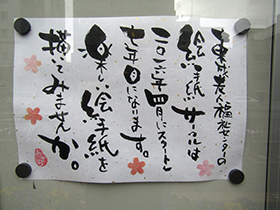 東が丘老人福祉センターの
絵手紙サークルは
二〇一六年四月にスタートし
七年目になります。
楽しい絵手紙を
描いてみませんか。